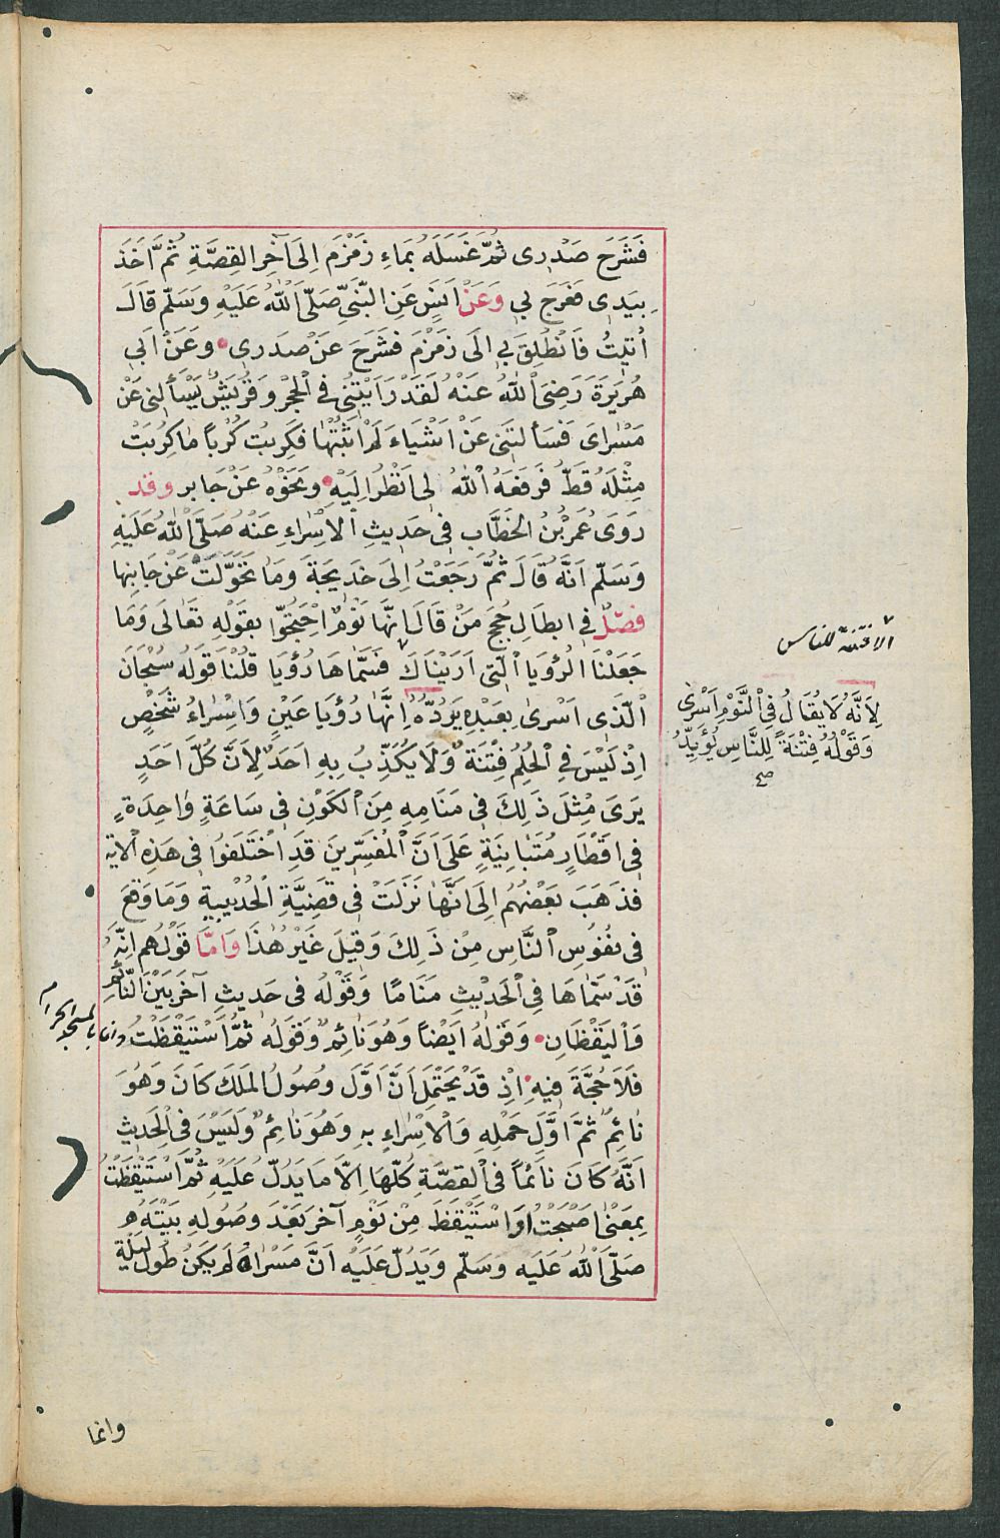 فَشَرَحَ صَدْرِى ثُمَّ غَسَلَهُ بِمَاءِ زَمْزَمَ اِلَى آخِرِ القِصَّةِ ثُمَّ اَخَذَ
بِيَدِى فَعَرَجَ بِي وَعَنْ اَنَسٍ عَنِ النَّبِىِّ صَلَّى اللهُ عَلَيْهِ وَسَلَّمَ قَالَ
اُتِيتُ فَانْطُلِقَ بِي اِلَى زَمْزَمَ فَشُرِحَ عَنْ صَدْرِى وَعَنْ اَبِي
هُرَيْرَةَ رَضِىَ اللهُ عَنْهُ لَقَدْ رَاَيْتُنِى فِي الْحِجْرِ وَقُرَيْشٌ يَسْأَلُنِى عَنْ
مَسْرَاىَ فَسَأَلَتْنِى عَنْ اَشْيَاءَ لَمْ اُثْبِتْهَا فَكُرِبْتُ كُرْبًا مَا كُرِبْتُ
مِثْلَهُ قَطُّ فَرَفَعَهُ اللهُ لِى اَنْظُرُ اِلَيْهِ وَنَحْوُهُ عَنْ جَابِرٍ وَقَد
رَوَى عُمَرُ بْنُ الخَطَّابِ فِى حَدِيثِ الْاِسْرَاءِ عَنْهُ صَلَّى اللهُ عَلَيْهِ
وَسَلَّمَ اَنَّهُ قَالَ ثُمَّ رَجَعْتُ اِلَى خَدِيجَةَ وَمَا تَحَوَّلَتْ عَنْ جَانِبِهَا
فَصْلٌ فِى اِبطَالِ حُجَجِ مَنْ قَالَ اِنَّهَا نَوْمٌ اِحْتَجُّوا بِقَوْلِهِ تَعَالَى وَمَا
جَعَلْنَا الرُّؤْيَا الَّتِى اَرَيْنَاكَ فَسَمَّاهَا رُؤْيَا قُلْنَا قَوْلُهُ سُبْحَانَ
الا فتنة للناس
الَّذِى اَسْرَى بِعَبْدِهِ يَرُدُّهُ اِنَّهَا رُؤْيَا عَيْنٍ وَاِسْرَاءُ شَخْصٍ
لِاَنَّهُ لَا يُقَالُ فِى النَّوْمِ اَسْرَى
وَقَوْلُهُ فِتْنَةً لِلنَّاسِ يُؤَيِّدُ
صح
اِذْ لَيْسَ فِى الْحُلُمِ فِتْنَةٌ وَلَا يُكَذِّبُ بِهِ اَحَدٌ لِاَنَّ كُلَّ اَحَدٍ
يَرَى مِثْلَ ذَلِكَ فِى مَنَامِهِ مِنَ الكَوْنِ فِى سَاعَةٍ وَاحِدَةٍ
فِى اَقْطَارٍ مُتَبَايِنَةٍ عَلَى اَنَّ الْمُفَسِّرِينَ قَدِ اخْتَلَفُوا فِى هَذِهِ الْآيَة
فَذَهَبَ بَعْضُهُم اِلَى اَنَّهَا نَزَلَتْ فِى قَضِيَّةِ الْحُدَيْبِيَةِ وَمَا وَقَعَ
فِى نُفُوسِ النَّاسِ مِنْ ذَلِكَ وَقِيلَ غَيْرُ هٰذَا وَاَمَّا قَوْلُهُم اِنَّهُ
قَدْ سَمَّاهَا فِى الْحَدِيثِ مَنَامًا وَقَوْلُهُ فِى حَدِيثٍ آخَرَ بَيْنَ النَّائِمِ
وَالْيَقْظَانِ وَقَوْلُهُ اَيْضًا وَهُوَ نَائِمٌ وَقَوْلُهُ ثُمَّ اسْتَيْقَظْتُ وانا بالمسجد الحرام
فَلَا حُجَّةَ فِيهِ اِذْ قَدْ يَحْتَمِلُ اَنَّ اَوَّلَ وُصُولُ المَلَكِ كَانَ وَهُوَ
نَائِمٌ ثُمَّ اَوَّلِ حَمْلِهِ وَالْاِسْرَاءِ بِهِ وَهُوَ نَائِمٌ وَلَيْسَ فِى الْحَدِيثِ
اَنَّهُ كَانَ نَائِمًا فِى القِصَّةِ كُلِّهَا اِلَّا مَا يَدُلُّ عَلَيْهِ ثُمَّ اسْتَيْقَظْتُ
بِمَعْنَى اصْبَحْتُ اَوِ اسْتَيْقَظَ مِنْ نَوْمٍ آخَرَ بَعْدَ وُصُولِهِ بَيْتَهُ
صَلَّى اللهُ عَلَيْهِ وَسَلَّمَ وَيَدُلُّ عَلَيْهِ اَنَّ مَسْرَاهُ لَمْ يَكُنْ طُولَ لَيْلَةٍ
وانما